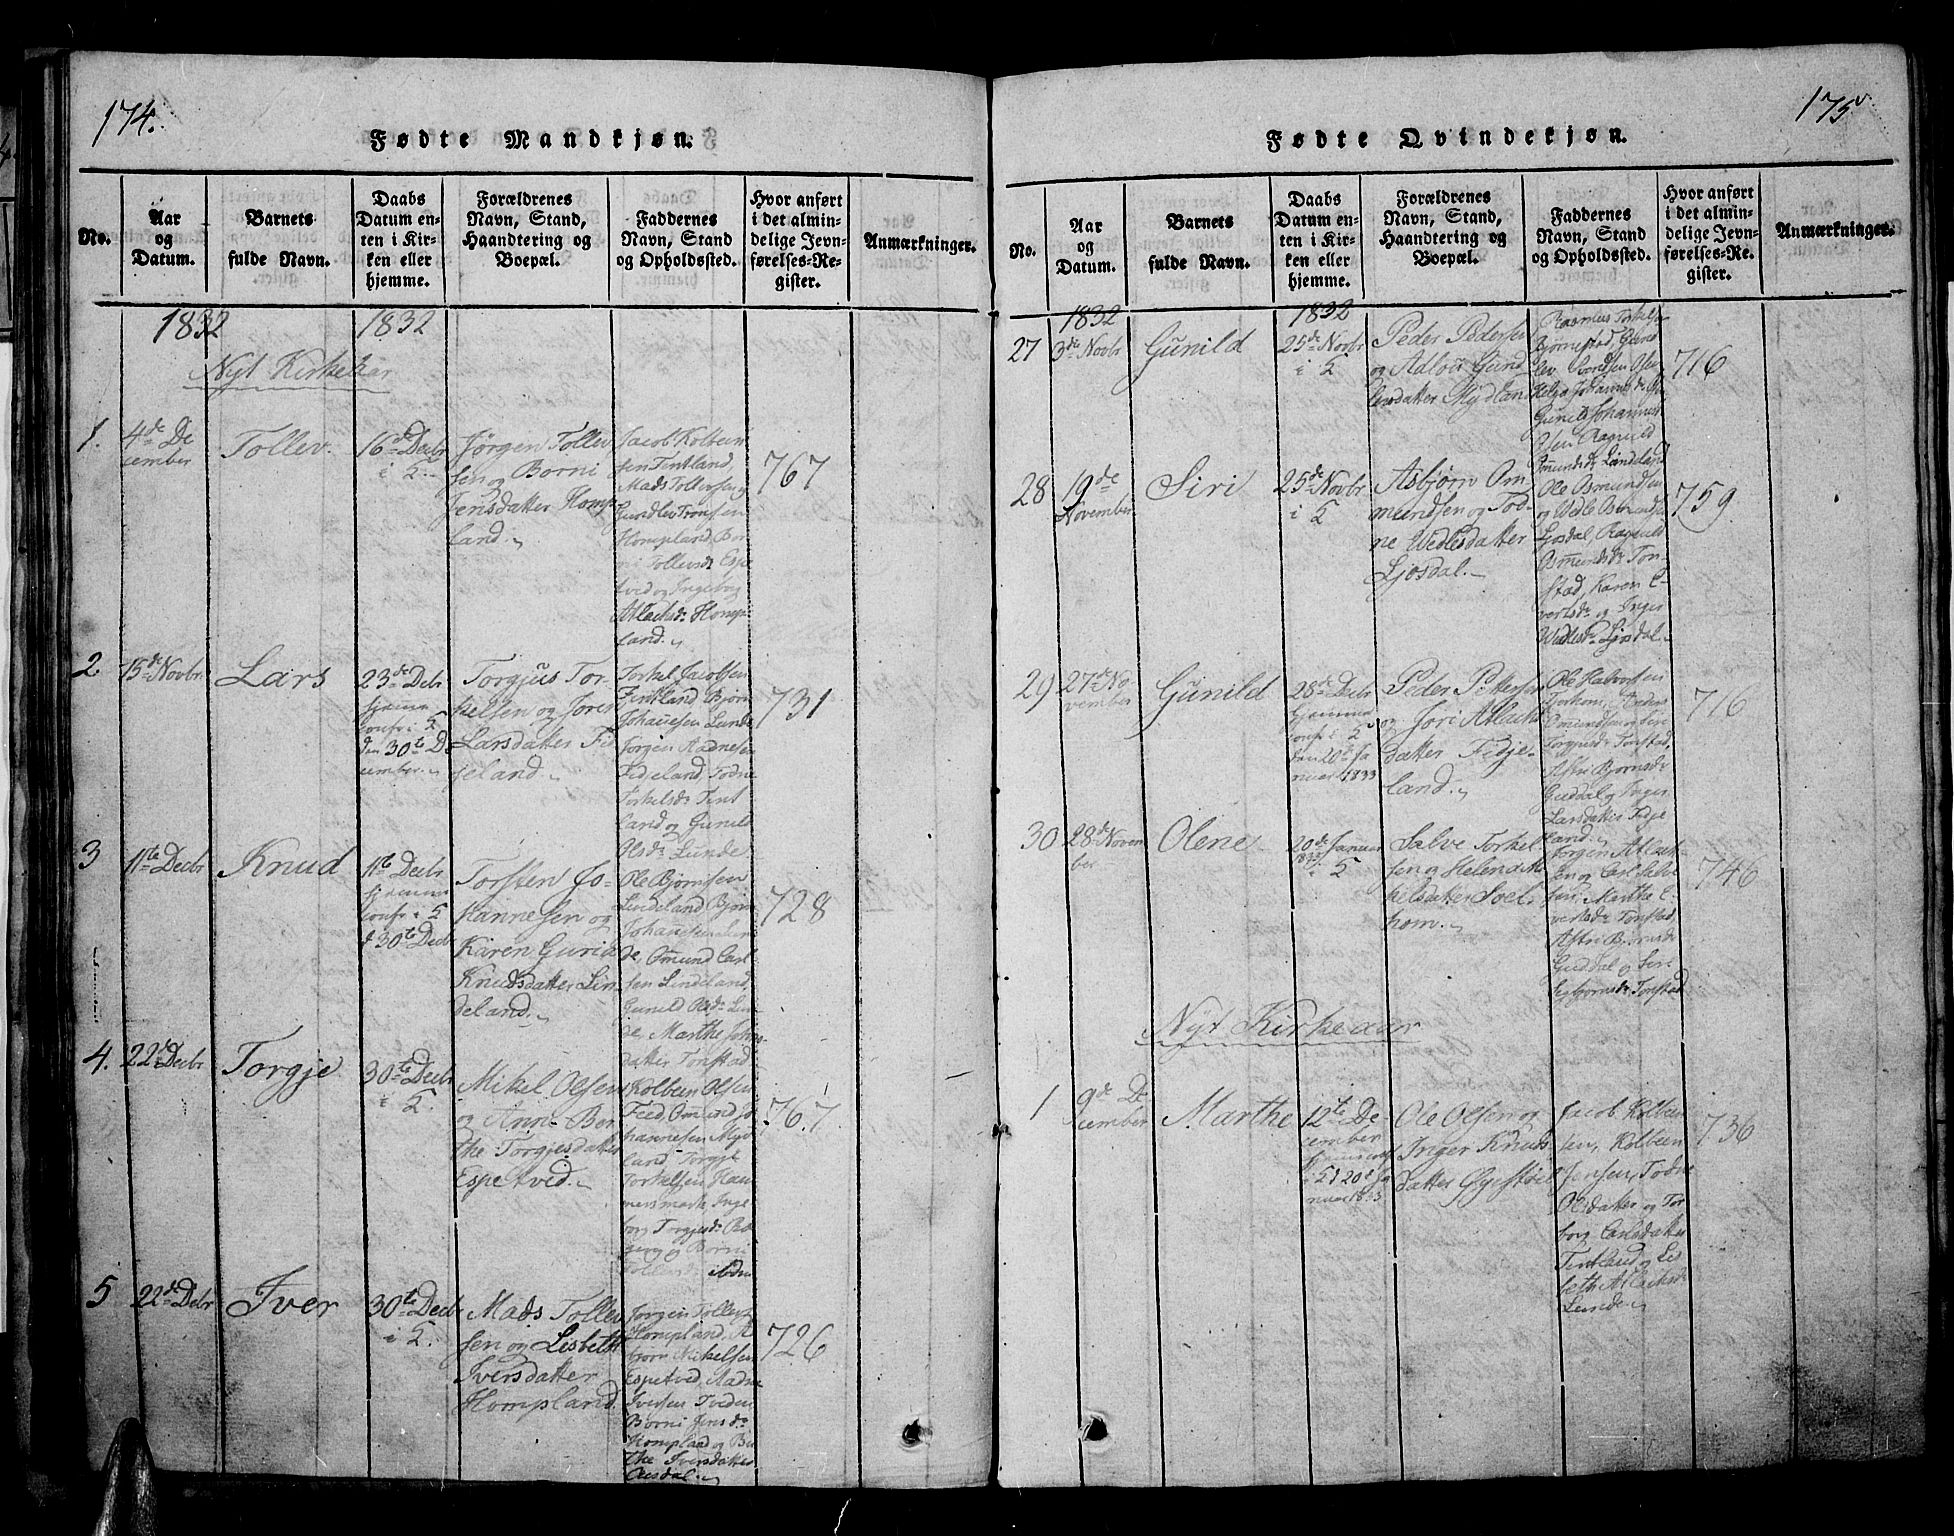 174.
Fødte Mandkjøn.
No.
Aar
og
Datum.
Barnets
fulde Navn.
Daabs
Datum en-
ten i Kir-
ken eller
hjemme.
Forældrenes
Navn, Stand,
Haandtering og
Boepæl.
Faddernes
Navn, Stand
og Opholdssted.
Hvor anført
i det almin-
delige Jevn-
førelses-Re-
gister.
Anmærkninger.
1832
1832
Nyt Kirkeaar
1.
4de De
cember
Tollev.
16de Decbr
i 5.
Jørgen Tollev
sen og Borni
Jensdatter Homp
land.
Jacob Kolbein
sen Tintland,
Mads Tollevsen og
Gundlev Tronsen
Hompland, Bor
ni Tollevsdr Espe
tved og Ingeborg
Atlaksdr Homp-
land.
767
2
15de Novbr.
Lars
23de Debr
hjemme
confr i 5
den 30te D
cember.
Torgjus Tor-
kelsen og Joren
Larsdatter Fid
jeland.
Torkel Jacobsen
Tintland Bjørn
Johanesen Lunde
Jørgen Aadnesen
Fidjeland, Todne
Torkelsdr Tint
land og Gunild
Olsdr Lunde.
731
3
11te Decbr
Knud
11te Decbr
hjemme
confr i 5
d 30te Decbr
Torsten Jo-
hannesen og
Karen Gurid
Knudsdatter Lin
deland.
Ole Bjørnsen
Lindeland, Bjørn
Johanesen Lun
de, Omund Carl
sen Lindeland,
Gunild Olsdr Lun
de, Marthe Johns
datter Tonstad
728
4.
22de Decbr
Torgje
30te Decbr
i 5.
Mikel Olsen
og Anne Ber
the Torgjesdatter
Espetved.
Kolbein Olsen
Fied, Omund Jo
hannesen Myd
land, Torgje
Torkelsen Ham
mersmark, Inge
borg Torgjesdr
og Borni
767
5
22de Debr
Iver
30te Decbr
i 5.
Mads Tollev
sen og Lisbeth
Iversdatter
Hompland.
Jørgen Tollevs
Hompland, As
bjørn Mikelsen
Espetved, Aadne
Iversen Tveden
Borni Jensdr
Hompland og Ber
the Iversdatter
726
175
Fødte Qvindekjøn.
No.
Aar
og
Datum.
Barnets
fulde Navn.
Daabs
Datum en-
ten i Kir-
ken eller
hjemme.
Forældrenes
Navn, Stand,
Haandtering og
Boepæl.
Faddernes
Navn, Stand
og Opholdssted.
Hvor anført
i det almin-
delige Jevn-
førelses-Re-
gister.
Anmærkninger.
1832
1832
27
3de Novbr
Gunild
25de Novbr
i 5
Peder Pedersen
og Adlou Gund
levsdatter Mydland
Rasmus Torkelse
Bjørnestad, Gund
lev
Helga Johannesdr
Gunild Johannes
Ragnild
Omundsdr Lindeland
716
28
19de
November
Siri
25de Novbr
i 5
Asbjørn Om
mundsen og Tod-
ne Wedlesdatter
Ljosdal.
Ole Osmundsen
og Wedle Osmundsen
Ljosdal, Ragnild
Osmundsdr Ton
stad, Karen E-
vertsdr og Inger
Wedlesdr Ljosdal.
759
29
27de No
vember
Gunild
28de Decbr
hjemme
conf i 5
den 20de Ja
nuar 1833
Peder Pettersen
og Jori Atlaks
datter Fidje-
land.
Ole Halvorsen
Josdal, Anders
Omundsen og
Torgjusdr Tonstad,
Astri Bjørnsdr
Guddal og Inger
Larsdatter Fidje
land.
716
30
28de Novem
ber
Olene
20de Januar
1833
i 5
Salve Torkel
sen og Helen Mi
kelsdatter Soel
hom.
Jørgen Atlak-
sen og Carl Salve
sen, Marthe E-
vertsdr Tonstad,
Astri Bjørnsdr
Guddal og Siri
Sigbjørnsdr Tonstad
746
Nyt Kirkeaar
1
9de De
cember
Marthe
12te De-
cember
hjemme conf
i 5 d 20de Ja
nuar 1833
Ole Olsen og
Inger Knuds
datter Øyestøel
Jacob Kolbein
sen, Kolbein
Jensen, Todne
Olsdatter og Tor
borg Carlsdatter
Tintland og Lis
beth Atlaksdr
Lunde
736